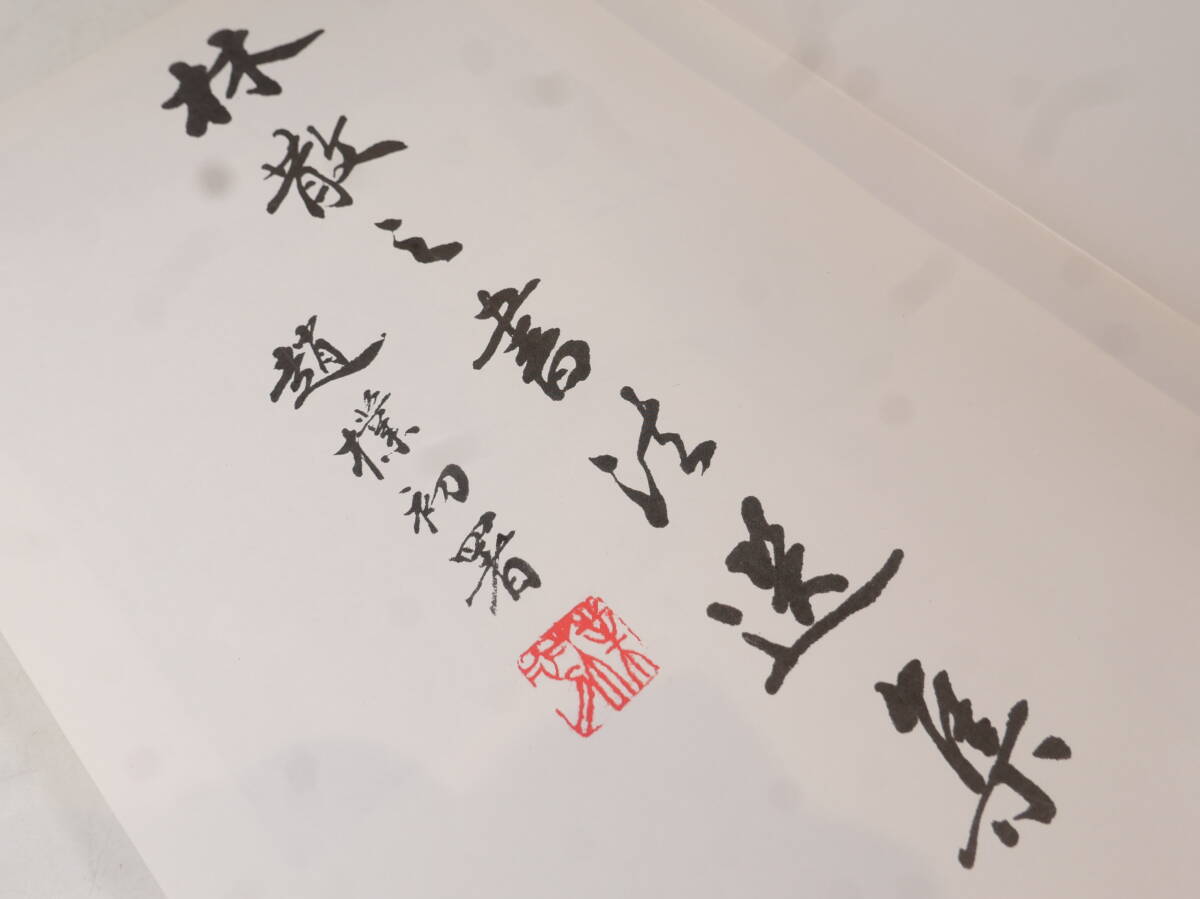 林散之書法选集
趙樸初署